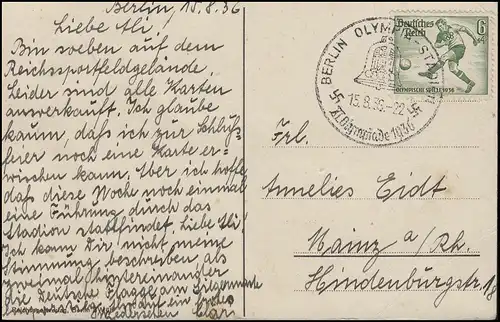 Berlin, 15.8.36
Liebe Mi!
Bin soeben auf dem
Reichssportfeldgelände.
Leider sind alle Karten
ausverkauft. Ich glaube
kaum, daß ich zur Schluß-
feier noch eine Karte er-
wischen kann. Aber ich hoffe,
daß diese Woche noch einmal
eine Führung durch das
Stadion stattfindet. Liebe Mi!
Ich kann Dir nicht meine
Stimmung beschreiben, als
zweimal hintereinander
die Deutsche Flagge am Siegermaste
Wiedersehen
BERLIN OLYMPIA-STADION
15.8.36.-22
XI. Olympiade 1936
Deutsches
Reich
6
OLYMPISCHE SPIELE 1936
Frl.
Annelies Eidt
Mainz a/Rh.
Hindenburgstr. 18